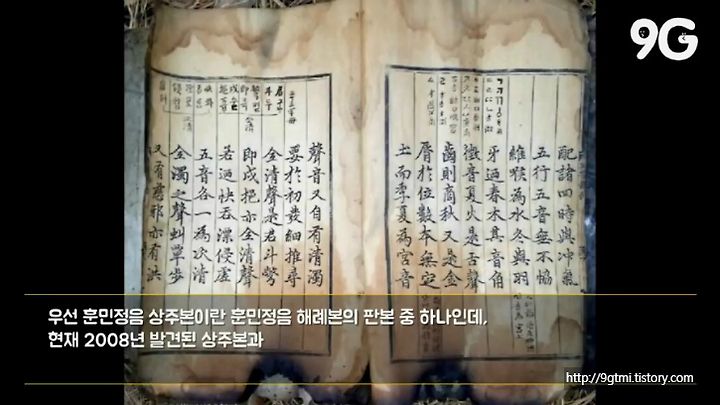 9G
配諸四時與冲氣
五行五音無不協
維喉為水冬與羽
牙迺春木其音角
徵音夏火是舌聲
齒則商秋又是金
脣於位數本無定
土而季夏為宮音
聲音又自有清濁
要於初發細推尋
全清聲是君斗彆
即戌挹亦全清聲
若迺快吞漂侵虛
五音各一為次清
全濁之聲虯覃步
又有慈邪亦有洪
우선 훈민정음 상주본이란 훈민정음 해례본의 판본 중 하나인데,
현재 2008년 발견된 상주본과
http://9gtmi.tistory.com